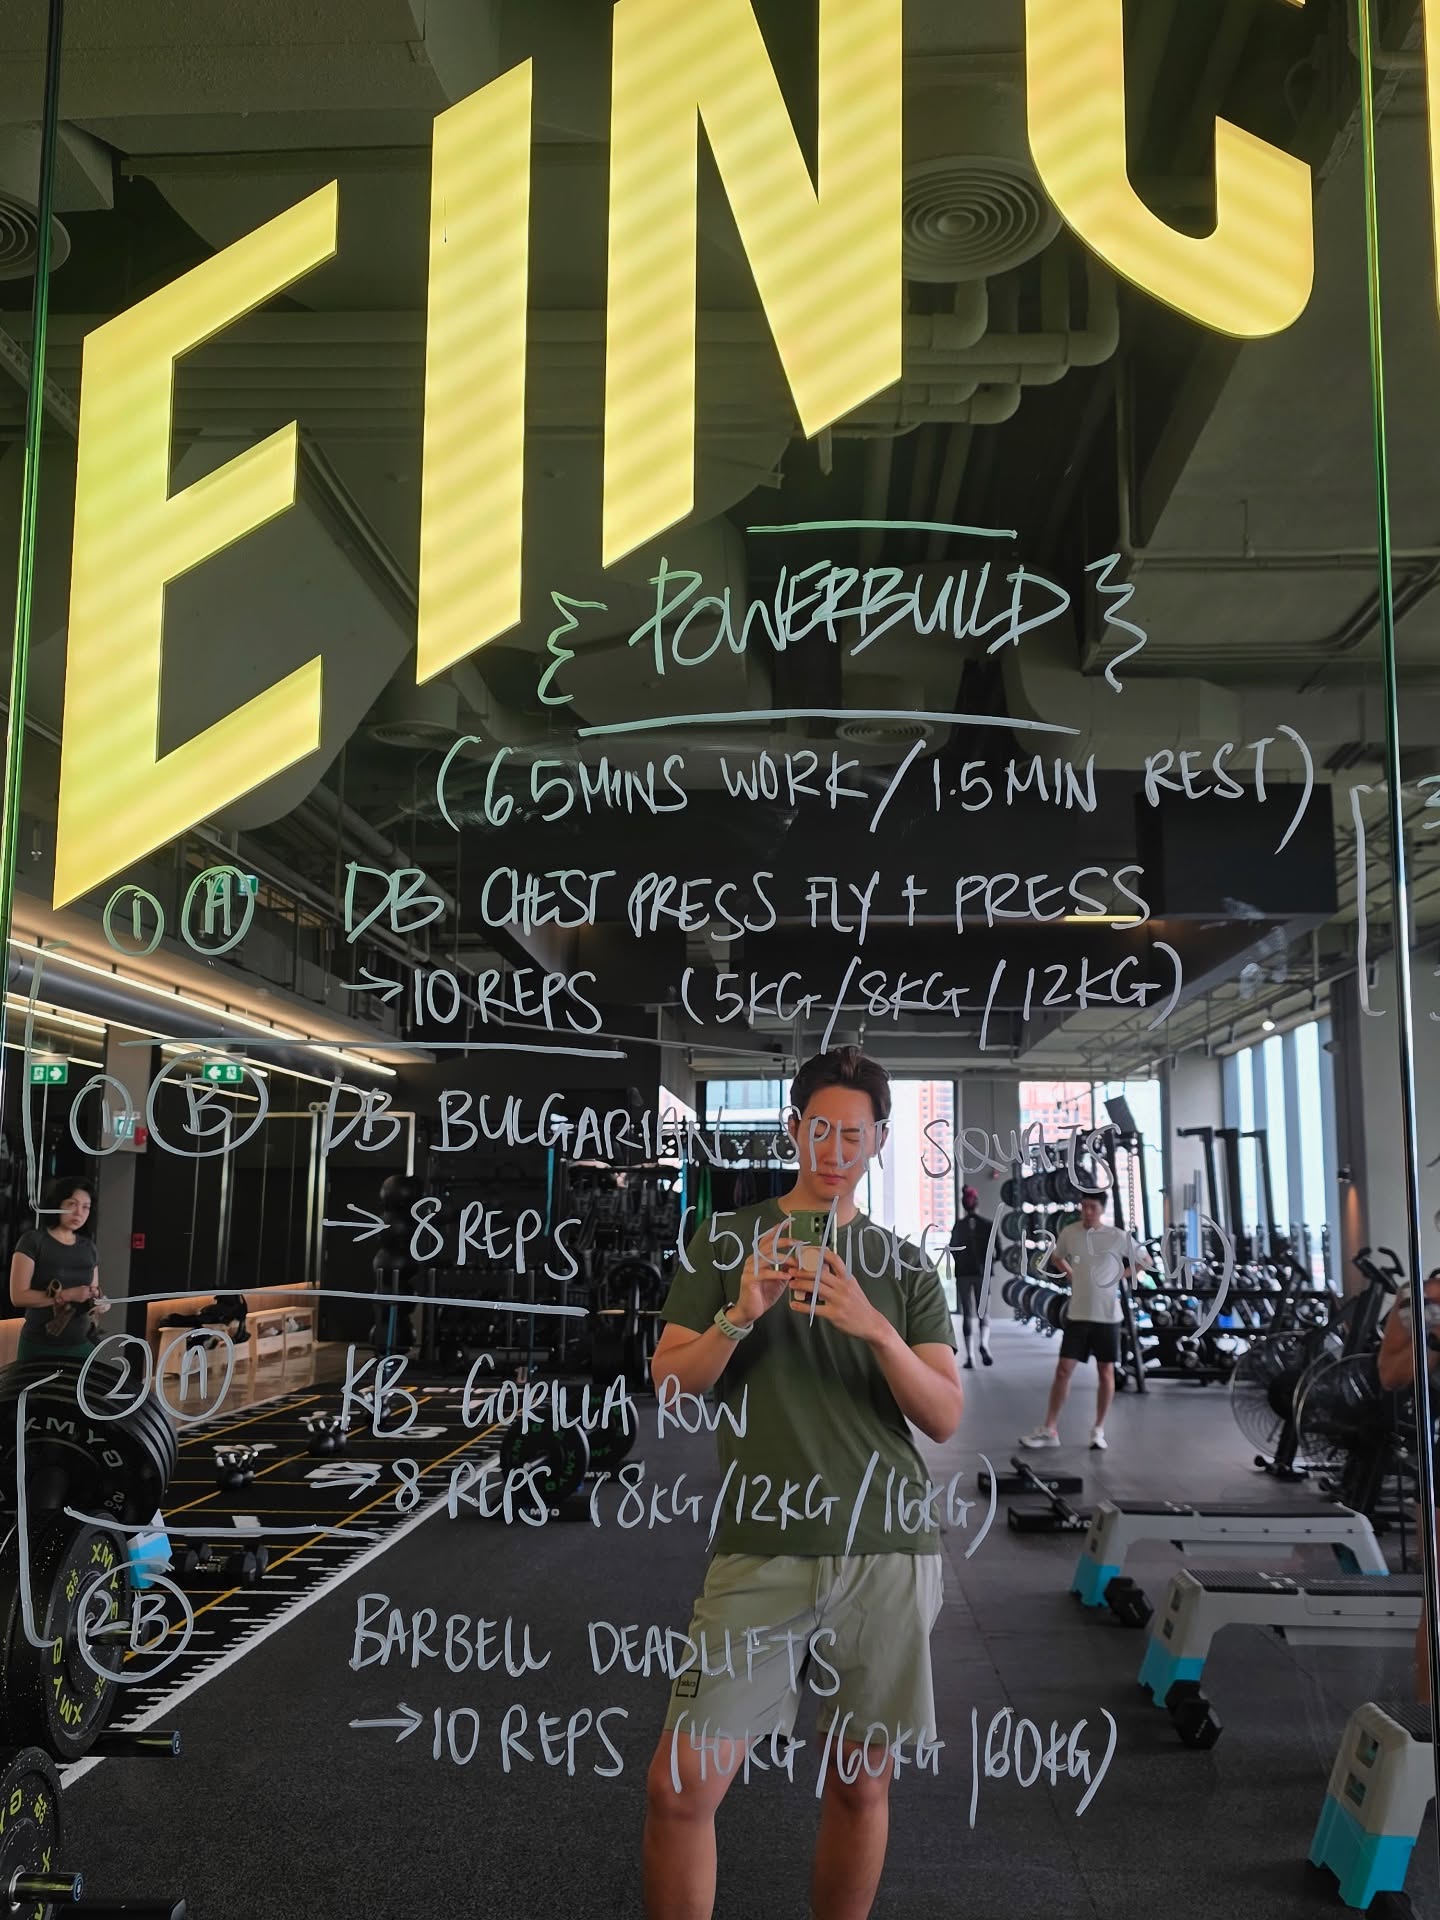 EINC
{ POWERBUILD }
(6.5MINS WORK / 1.5MIN REST)
1 A DB CHEST PRESS FLY + PRESS
→10 REPS (5KG / 8KG / 12KG)
1 B DB BULGARIAN SPLIT SQUATS
→ 8 REPS (5KG / 10KG / 12.5KG)
2 A KB GORILLA ROW
→ 8 REPS (8KG / 12KG / 16KG)
2B BARBELL DEADLIFTS
→10 REPS (40KG / 60KG / 80KG)
XMYD
XMYD
XMYD